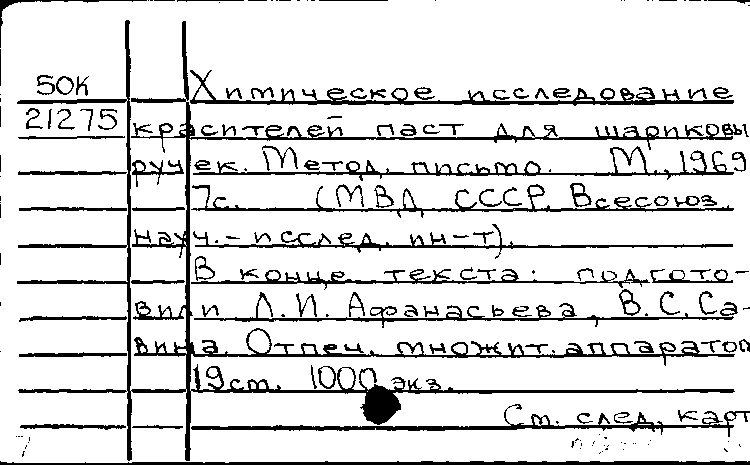 50К
21275
Химическое исследование
красителей паст для шариковы
ручек. Метод. письмо. М., 1969
7с. (МВД СССР. Всесоюз.
науч.-исслед. ин-т).
В конце текста: подгото-
вили Л.И. Афанасьева, В.С. Са-
вина. Отпеч. множит. аппаратом
19см. 1000 экз.
См. след. карт
7